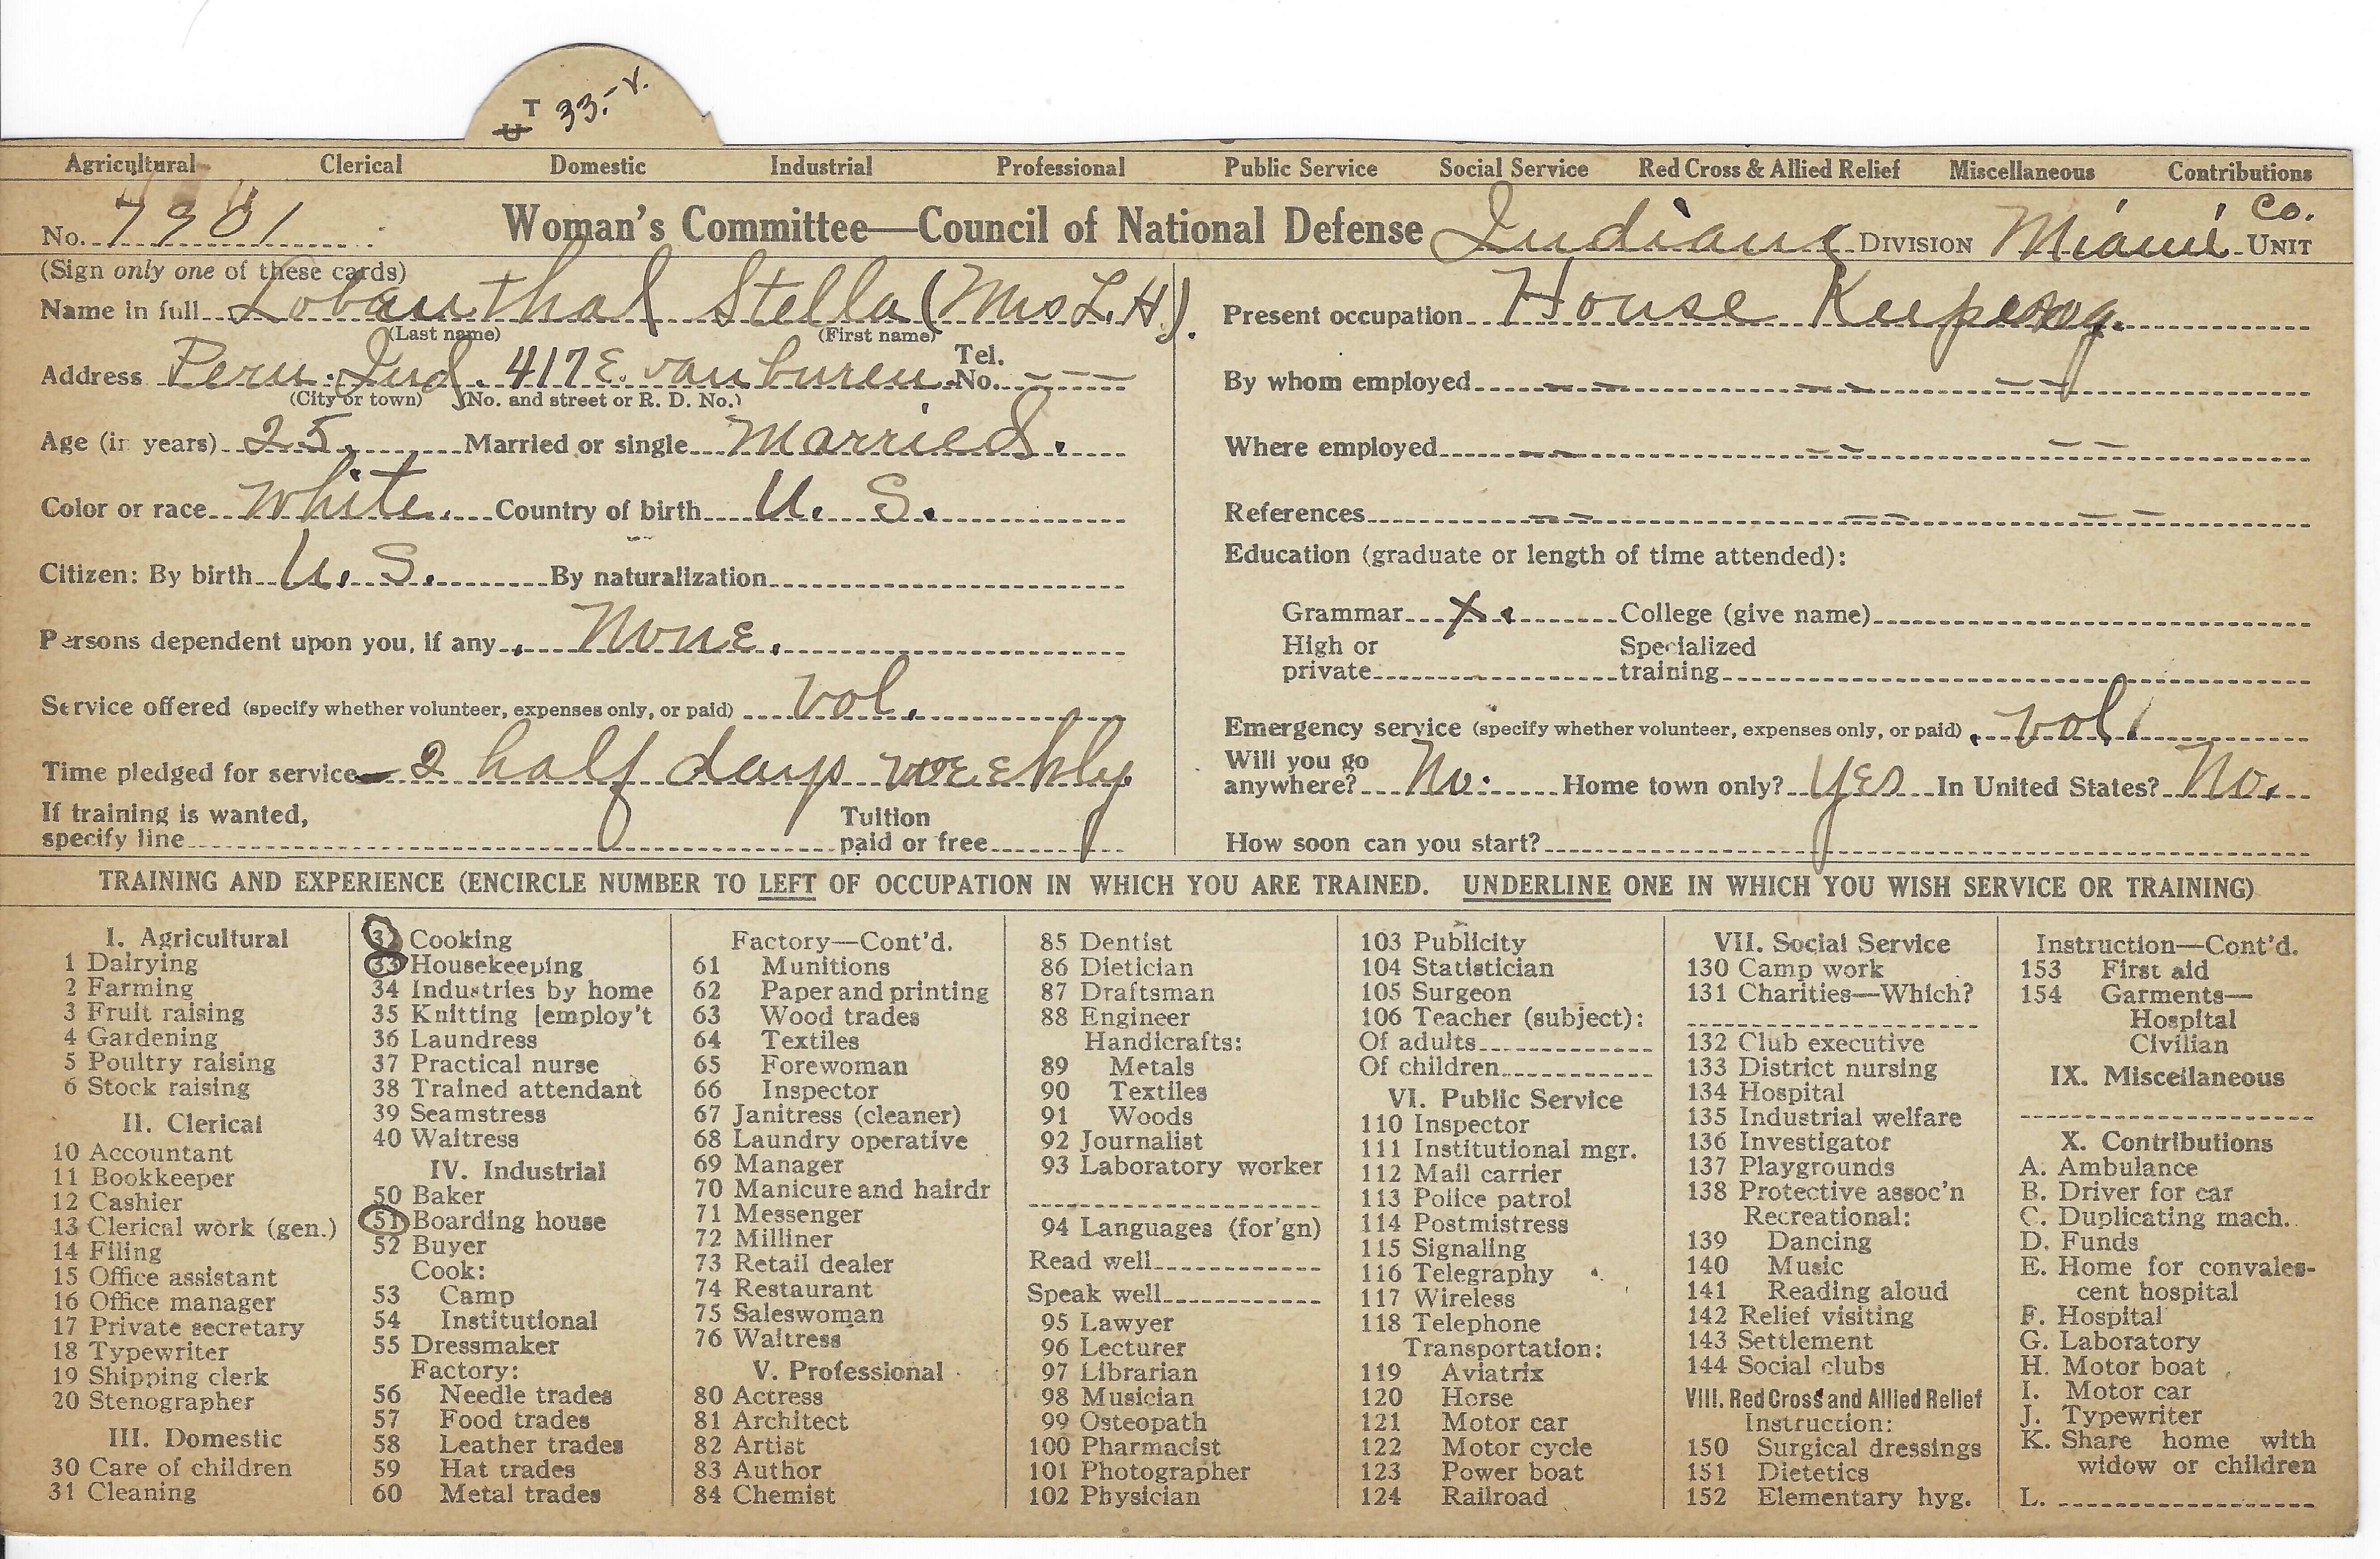 T 33.- v.
U
Agricultural Clerical Domestic Industrial Professional Public Service Social Service Red Cross & Allied Relief Miscellaneous Contributions
No. 7901 Woman's Committee—Council of National Defense Indiana DIVISION Miami Co. UNIT
(Sign only one of these cards)
Name in full Lobanthal Stella (Mrs L.H.)
(Last name) (First name)
Address Peru. Ind. 417 E. van buren. Tel. No. — — —
(City or town) (No. and street or R. D. No.)
Age (in years) 25. Married or single married.
Color or race white. Country of birth U. S.
Citizen: By birth U. S. By naturalization
Persons dependent upon you, if any None.
Service offered (specify whether volunteer, expenses only, or paid) vol.
Time pledged for service 2 half days weekly
If training is wanted, specify line Tuition paid or free
Present occupation House Keeping.
By whom employed — — — — — —
Where employed — — — — — —
References — — — — — —
Education (graduate or length of time attended):
Grammar x. College (give name)
High or private Specialized training
Emergency service (specify whether volunteer, expenses only, or paid) vol.
Will you go anywhere? No. Home town only? yes In United States? No.
How soon can you start?
TRAINING AND EXPERIENCE (ENCIRCLE NUMBER TO LEFT OF OCCUPATION IN WHICH YOU ARE TRAINED. UNDERLINE ONE IN WHICH YOU WISH SERVICE OR TRAINING)
I. Agricultural
1 Dairying
2 Farming
3 Fruit raising
4 Gardening
5 Poultry raising
6 Stock raising
II. Clerical
10 Accountant
11 Bookkeeper
12 Cashier
13 Clerical work (gen.)
14 Filing
15 Office assistant
16 Office manager
17 Private secretary
18 Typewriter
19 Shipping clerk
20 Stenographer
III. Domestic
30 Care of children
31 Cleaning
32 Cooking
33 Housekeeping
34 Industries by home
35 Knitting [employ't
36 Laundress
37 Practical nurse
38 Trained attendant
39 Seamstress
40 Waitress
IV. Industrial
50 Baker
51 Boarding house
52 Buyer
Cook:
53 Camp
54 Institutional
55 Dressmaker
Factory:
56 Needle trades
57 Food trades
58 Leather trades
59 Hat trades
60 Metal trades
Factory—Cont'd.
61 Munitions
62 Paper and printing
63 Wood trades
64 Textiles
65 Forewoman
66 Inspector
67 Janitress (cleaner)
68 Laundry operative
69 Manager
70 Manicure and hairdr
71 Messenger
72 Milliner
73 Retail dealer
74 Restaurant
75 Saleswoman
76 Waitress
V. Professional
80 Actress
81 Architect
82 Artist
83 Author
84 Chemist
85 Dentist
86 Dietician
87 Draftsman
88 Engineer
Handicrafts:
89 Metals
90 Textiles
91 Woods
92 Journalist
93 Laboratory worker
94 Languages (for'gn)
Read well
Speak well
95 Lawyer
96 Lecturer
97 Librarian
98 Musician
99 Osteopath
100 Pharmacist
101 Photographer
102 Physician
103 Publicity
104 Statistician
105 Surgeon
106 Teacher (subject):
Of adults
Of children
VI. Public Service
110 Inspector
111 Institutional mgr.
112 Mail carrier
113 Police patrol
114 Postmistress
115 Signaling
116 Telegraphy
117 Wireless
118 Telephone
Transportation:
119 Aviatrix
120 Horse
121 Motor car
122 Motor cycle
123 Power boat
124 Railroad
VII. Social Service
130 Camp work
131 Charities—Which?
132 Club executive
133 District nursing
134 Hospital
135 Industrial welfare
136 Investigator
137 Playgrounds
138 Protective assoc'n
Recreational:
139 Dancing
140 Music
141 Reading aloud
142 Relief visiting
143 Settlement
144 Social clubs
VIII. Red Cross and Allied Relief
Instruction:
150 Surgical dressings
151 Dietetics
152 Elementary hyg.
Instruction—Cont'd.
153 First aid
154 Garments—
Hospital
Civilian
IX. Miscellaneous
X. Contributions
A. Ambulance
B. Driver for car
C. Duplicating mach.
D. Funds
E. Home for convales-
cent hospital
F. Hospital
G. Laboratory
H. Motor boat
I. Motor car
J. Typewriter
K. Share home with
widow or children
L.